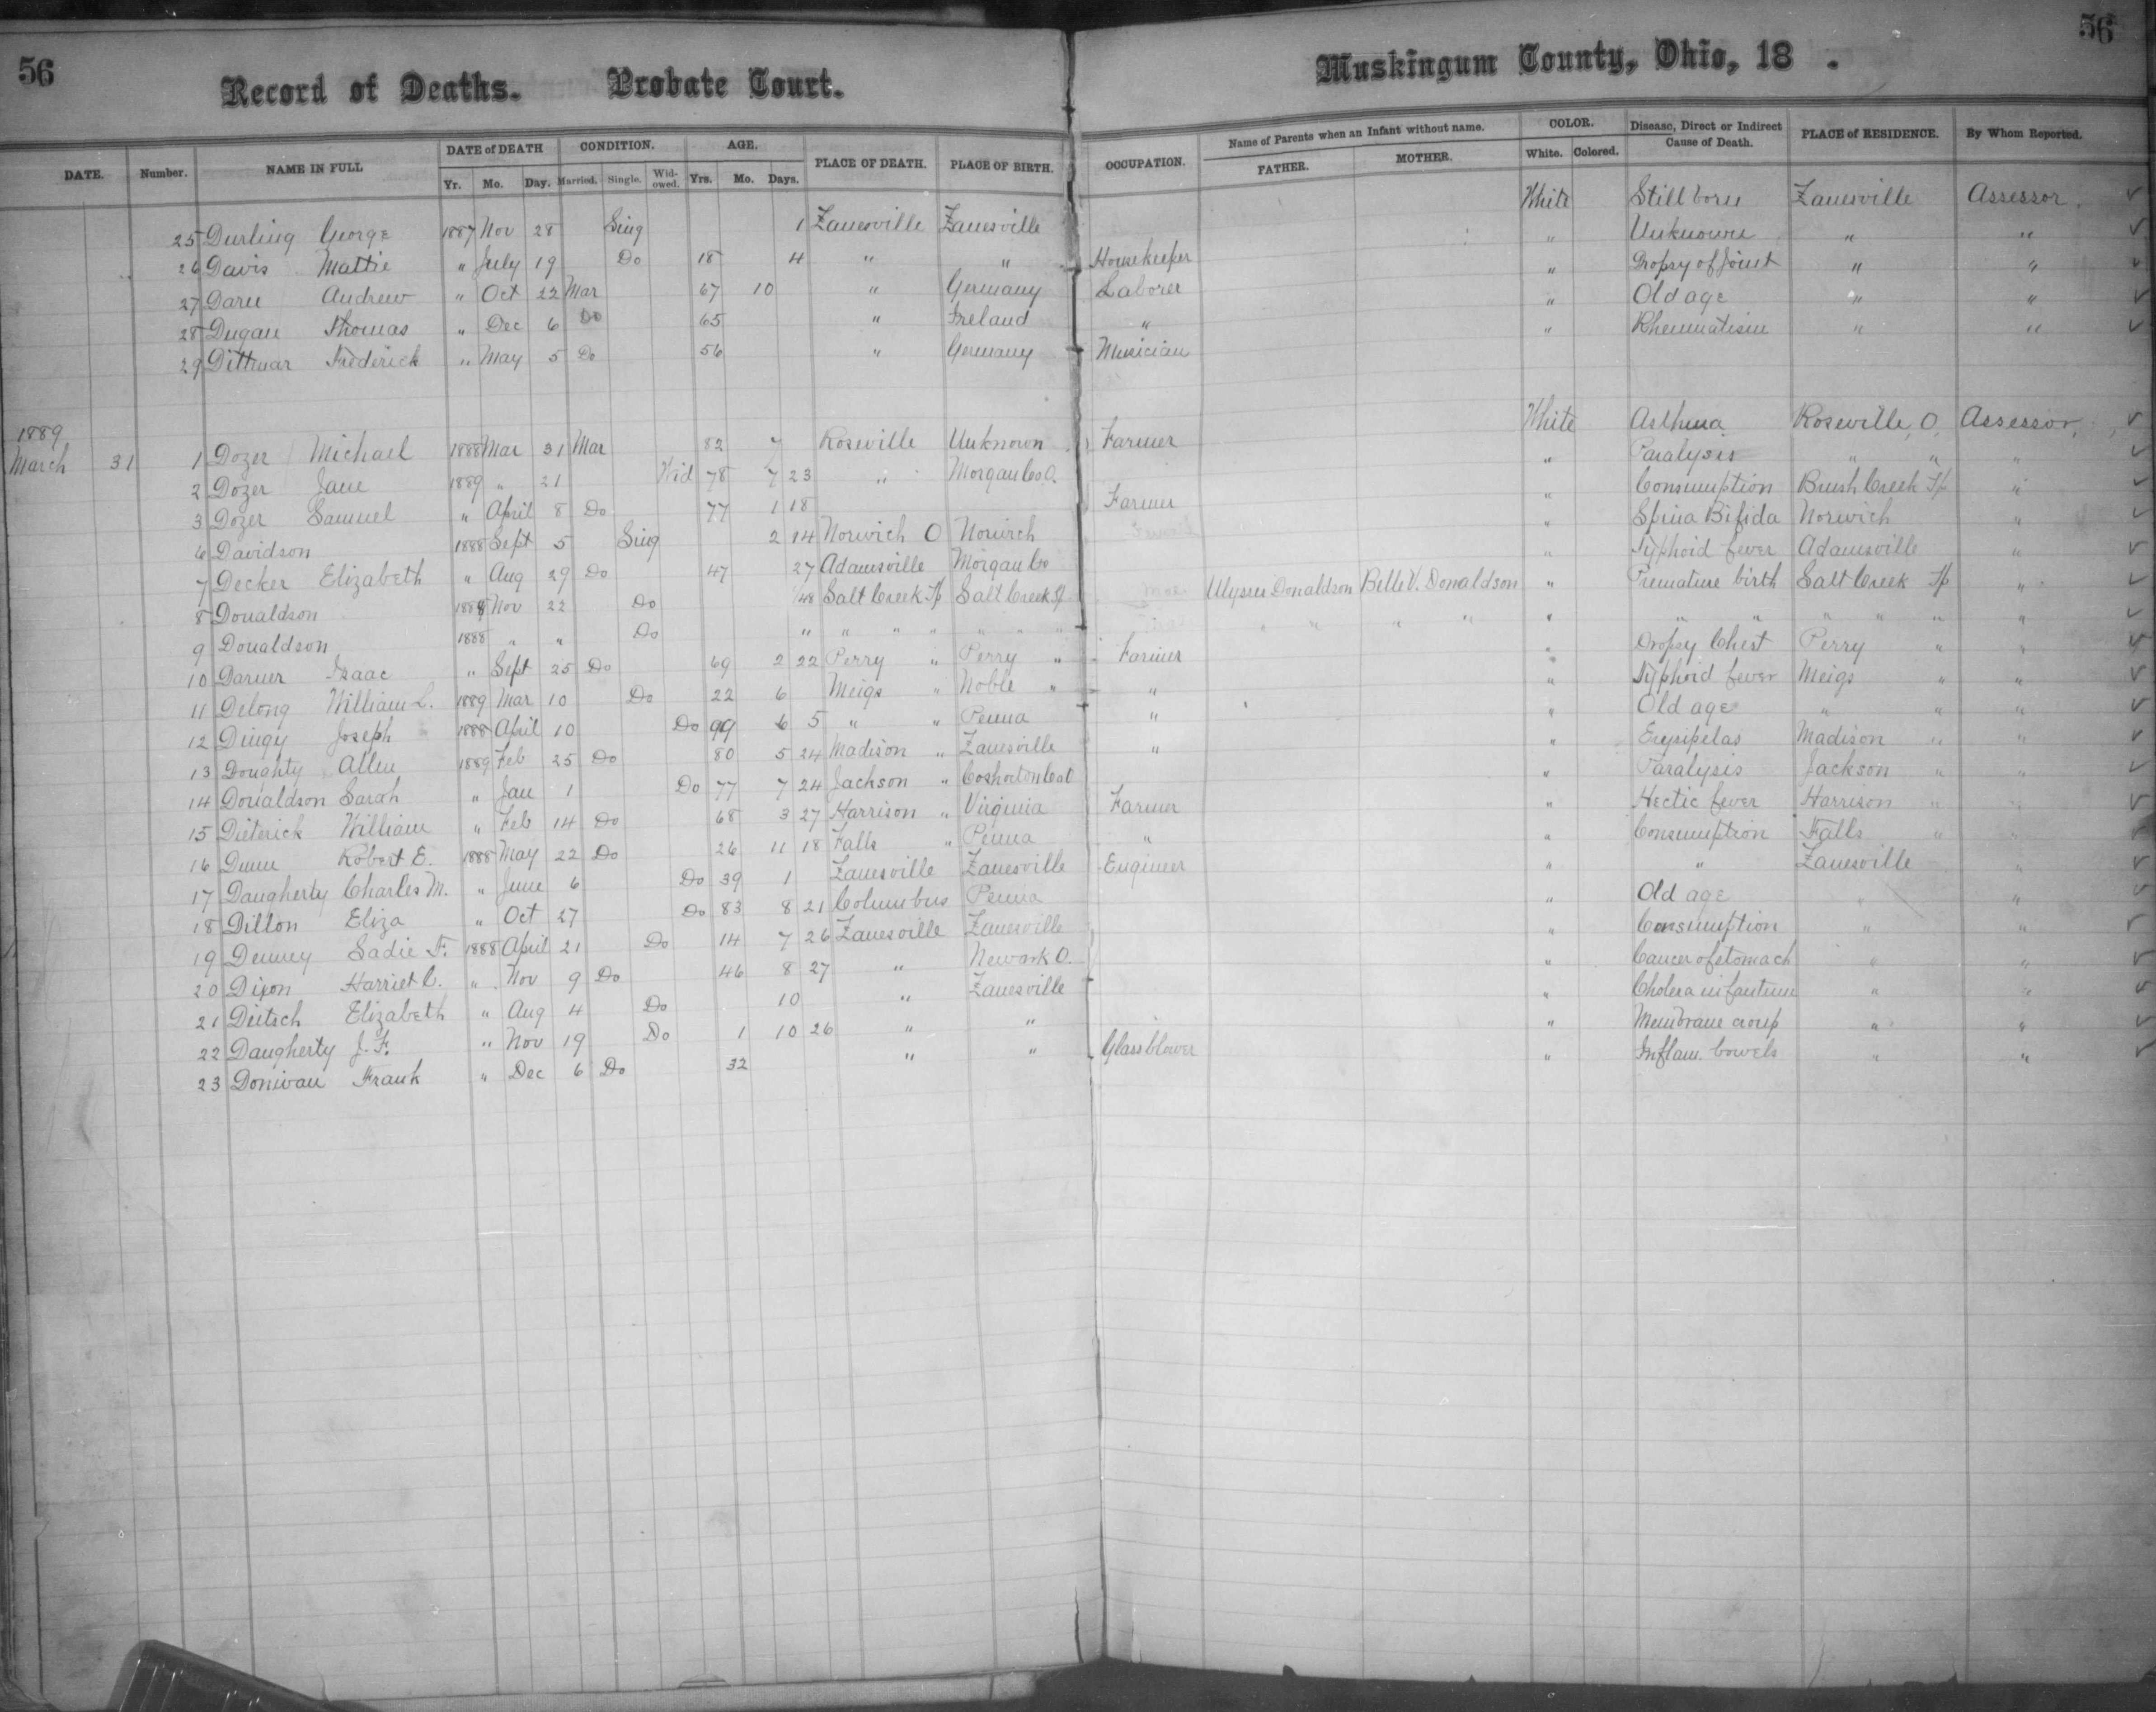 56 56
Record of Deaths. Probate Court. Muskingum County, Ohio, 18 .
DATE. Number. NAME IN FULL DATE of DEATH CONDITION. AGE. PLACE OF DEATH. PLACE OF BIRTH. OCCUPATION. Name of Parents when an Infant without name. COLOR. Disease, Direct or Indirect Cause of Death. PLACE of RESIDENCE. By Whom Reported.
Yr. Mo. Day. Married. Single. Wid-owed. Yrs. Mo. Days. FATHER. MOTHER. White. Colored.
25 Durling George 1887 Nov 28 Sing 1 Zanesville Zanesville White Still born Zanesville Assessor
26 Davis Mattie " July 19 Do 18 4 " " Housekeeper " Unknown " "
27 Daru Andrew " Oct 22 Mar 67 10 " Germany Laborer " Dropsy of Joint " "
28 Dugan Thomas " Dec 6 Do 65 " Ireland " " Old age " "
29 Dittmar Frederick " May 5 Do 56 " Germany Musician " Rheumatism " "
1889
March 31 1 Dozer Michael 1888 Mar 31 Mar 82 7 Roseville Unknown Farmer White Asthma Roseville, O, Assessor,
2 Dozer Jane 1889 " 21 Wid 78 7 23 " Morgan Co O. " Paralysis " " "
3 Dozer Samuel " April 8 Do 77 1 18 Farmer " Consumption Brush Creek Tp "
6 Davidson 1888 Sept 5 Sing 2 14 Norwich O Norwich " Spina Bifida Norwich "
7 Decker Elizabeth " Aug 29 Do 47 27 Adamsville Morgan Co " Typhoid fever Adamsville "
8 Donaldson 1888 Nov 22 Do 1/48 Salt Creek Tp Salt Creek Tp Ulysses Donaldson Belle V. Donaldson " Premature birth Salt Creek Tp "
9 Donaldson 1888 " " Do " " " " " " " " " " " " " " " " " "
10 Darner Isaac " Sept 25 Do 69 2 22 Perry " Perry " Farmer " Dropsy Chest Perry " "
11 Delong William L. 1889 Mar 10 Do 22 6 Meigs " Noble " " " Typhoid fever Meigs " "
12 Dingy Joseph 1888 April 10 Do 99 6 5 " " Penna " " Old age " " "
13 Doughty Allen 1889 Feb 25 Do 80 5 24 Madison " Zanesville " " Erysipelas Madison " "
14 Donaldson Sarah " Jan 1 Do 77 7 24 Jackson " Coshocton Co O " Paralysis Jackson " "
15 Dieterick William " Feb 14 Do 68 3 27 Harrison " Virginia Farmer " Hectic fever Harrison " "
16 Dunn Robert E. 1888 May 22 Do 26 11 18 Falls " Penna " " Consumption Falls " "
17 Daugherty Charles M. " June 6 Do 39 1 Zanesville Zanesville Engineer " " Zanesville "
18 Dillon Eliza " Oct 27 Do 83 8 21 Columbus Penna " Old age " "
19 Denney Sadie F. 1888 April 21 Do 14 7 26 Zanesville Zanesville " Consumption " "
20 Dixon Harriet C. " Nov 9 Do 46 8 27 " Newark O. " Cancer of stomach " "
21 Deitsch Elizabeth " Aug 4 Do 10 " Zanesville " Cholera infantum " "
22 Daugherty J. F. " Nov 19 Do 1 10 26 " " " Membrane croup " "
23 Donivan Frank " Dec 6 Do 32 " " Glassblower " Inflam. bowels " "